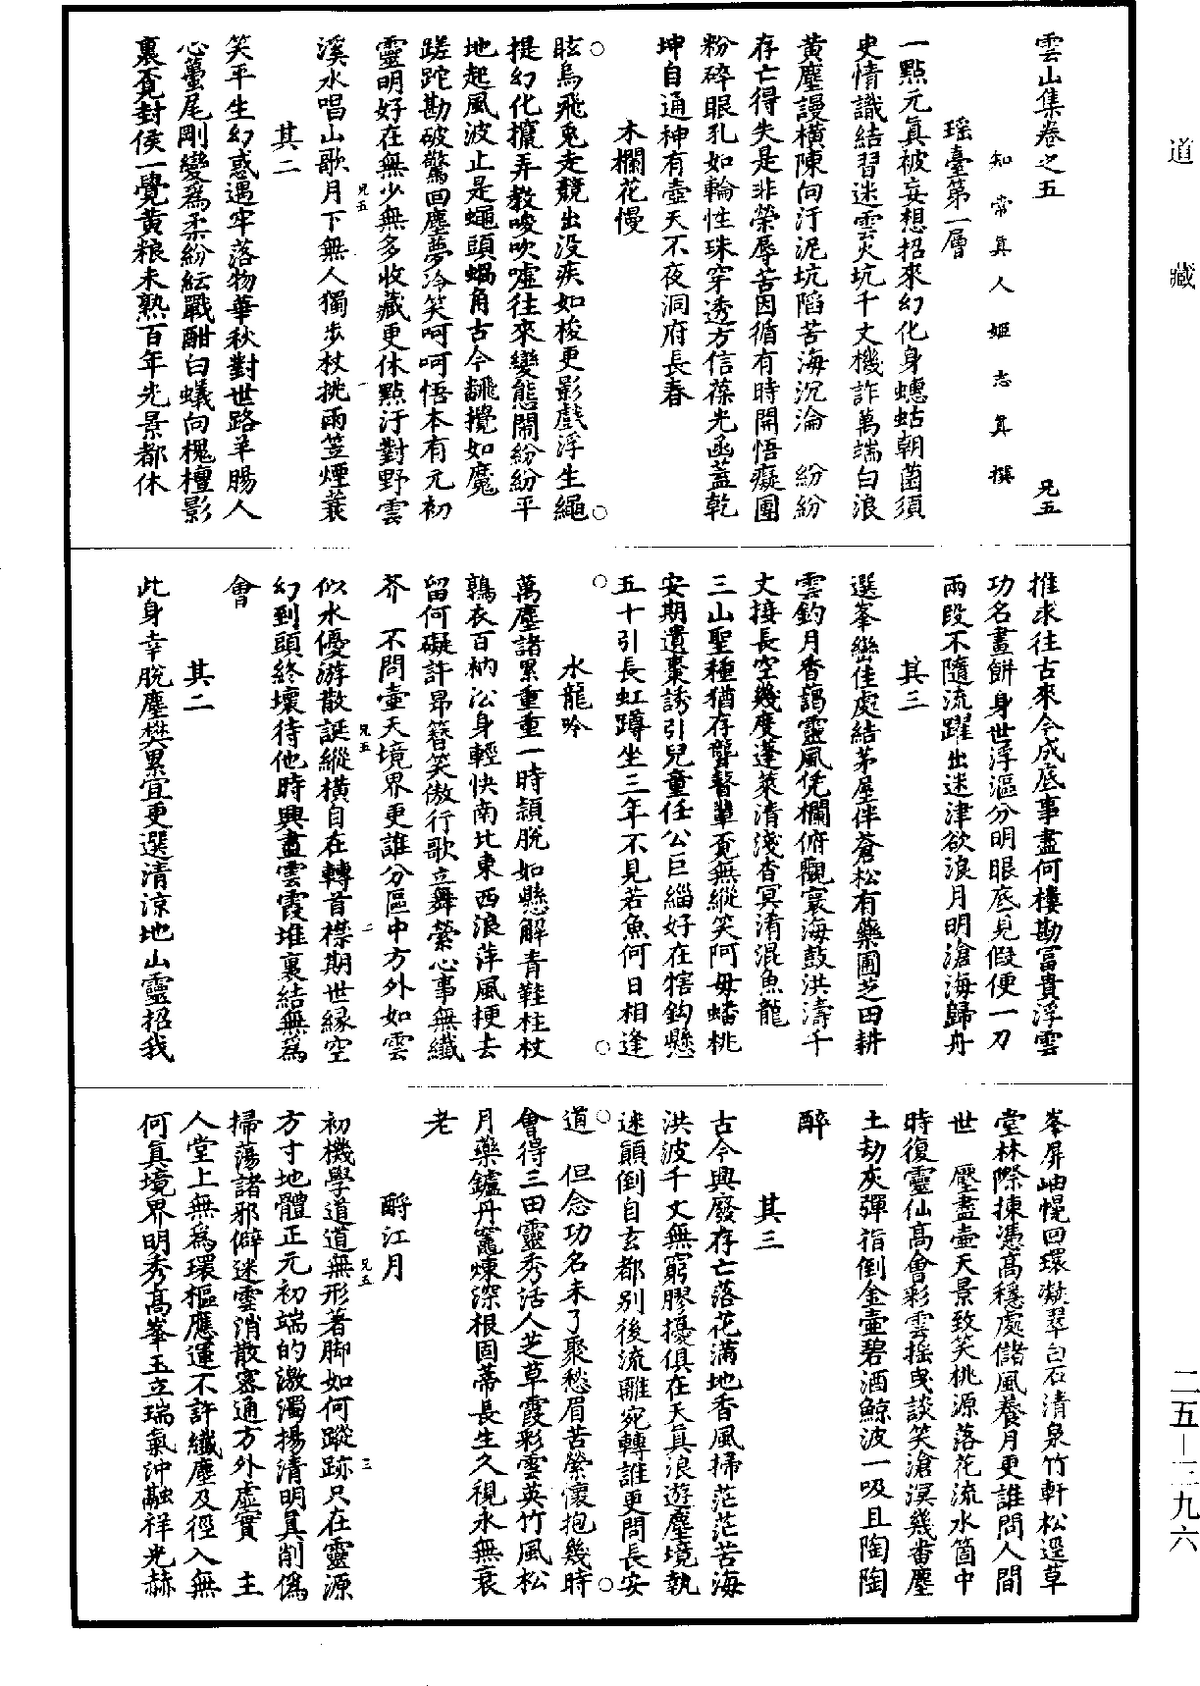 道藏
雲山集卷之五
兄五
知常真人姬志真撰
瑶臺第一層
一點元真被妄想招來幻化身蟪蛄朝菌須
史情識結習迷雲火坑千丈機詐萬端白浪
黃塵謾橫陳向汙泥坑陷苦海沉淪 紛紛
存亡得失是非榮辱苦因循有時開悟癡團
粉碎眼孔如輪性珠穿透方信葆光函蓋乾
坤自通神有壺天不夜洞府長春
木欄花慢
眩烏飛兔走競出没疾如梭更影戲浮生繩
提幻化攛弄教唆吹噓往來變態鬧紛紛平
地起風波止是蠅頭蝸角古今飜攪如魔
蹉跎勘破驚回塵夢冷笑呵呵悟本有元初
靈明好在無少無多收藏更休點汙對野雲
溪水唱山歌月下無人獨步杖挑雨笠煙蓑
其二
笑平生幻惑遇牢落物華秋對世路羊腸人
心蠆尾剛變爲柔紛紜戰酣白蟻向槐檀影
裏覓封侯一覺黃粮未熟百年光景都休
推求往古來今成底事盡何樓勘富貴浮雲
功名畫餅身世浮漚分明眼底見假便一刀
兩段不隨流躍出迷津欲浪月明滄海歸舟
其三
選峯巒佳處結茅屋伴蒼松有藥圃芝田耕
雲釣月香藹靈風凭欄俯觀寰海鼓洪濤千
丈接長空幾度蓬萊清淺杳冥淆混魚龍
三山聖種猶存聾瞽輩覓無縱笑阿母蟠桃
安期遺棗誘引兒童任公巨緇好在犗鈎懸
五十引長虹蹲坐三年不見若魚何日相逢
水龍吟
萬塵諸累重重一時頴脫如懸解青鞋柱杖
鶉衣百衲沁身輕快南北東西浪萍風梗去
留何礙許昂簪笑傲行歌立舞縈心事無纖
芥 不問壷天境界更誰分區中方外如雲
似水優游散誕縱橫自在轉首襟期世緣空
幻到頭終壞待他時興盡雲霞堆裏結無爲
會
其二
此身幸脫塵樊累宜更選清涼地山靈招我
峯屏岫幌回環凝翠白石清泉竹軒松逕草
堂林際揀憑高穩處儲風養月更誰問人間
世 壓盡壷天景致笑桃源落花流水箇中
時復靈仙高會彩雲摇曳談笑滄溟幾番塵
土劫灰彈指倒金壷碧酒鯨波一吸且陶陶
醉
其三
古今興廢存亡落花滿地香風掃茫茫苦海
洪波千丈無窮膠擾俱在天真浪遊塵境執
迷顛倒自玄都别後流離宛轉誰更問長安
道 但念功名未了聚愁眉苦縈懷抱幾時
會得三田靈秀活人芝草霞彩雲英竹風松
月藥鑪丹竈煉深根固蔕長生久視永無衰
老
酹江月
初機學道道無形著脚如何蹤跡只在靈源
方寸地體正元初端的激濁揚清明真削僞
掃蕩諸邪僻迷雲消散密通方外虛實 主
人堂上無爲環樞應運不許纖塵及徑入無
何真境界明秀高峯玉立瑞氣沖融祥光赫
二五—三九六